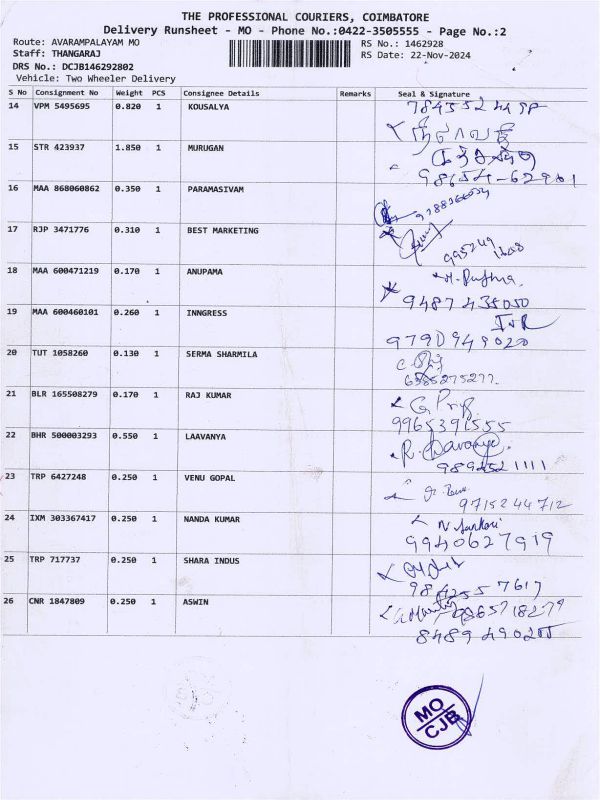 THE PROFESSIONAL COURIERS, COIMBATORE
Delivery Runsheet - MO - Phone No.:0422-3505555 - Page No.:2
Route: AVARAMPALAYAM MO RS No.: 1462928
Staff: THANGARAJ RS Date: 22-Nov-2024
DRS No.: DCJB146292802
Vehicle: Two Wheeler Delivery
S No Consignment No Weight PCS Consignee Details Remarks Seal & Signature
14 VPM 5495695 0.820 1 KOUSALYA
15 STR 423937 1.850 1 MURUGAN
98654-62901
16 MAA 868060862 0.350 1 PARAMASIVAM
17 RJP 3471776 0.310 1 BEST MARKETING
18 MAA 600471219 0.170 1 ANUPAMA
9487435050
19 MAA 600460101 0.260 1 INNGRESS
9790949020
20 TUT 1058260 0.130 1 SERMA SHARMILA
6385275277.
21 BLR 165508279 0.170 1 RAJ KUMAR
9965391555
22 BHR 500003293 0.550 1 LAAVANYA
9894521111
23 TRP 6427248 0.250 1 VENU GOPAL
9715244712
24 IXM 303367417 0.250 1 NANDA KUMAR
9940627919
25 TRP 717737 0.250 1 SHARA INDUS
9842557617
26 CNR 1847809 0.250 1 ASWIN
MO
CJB